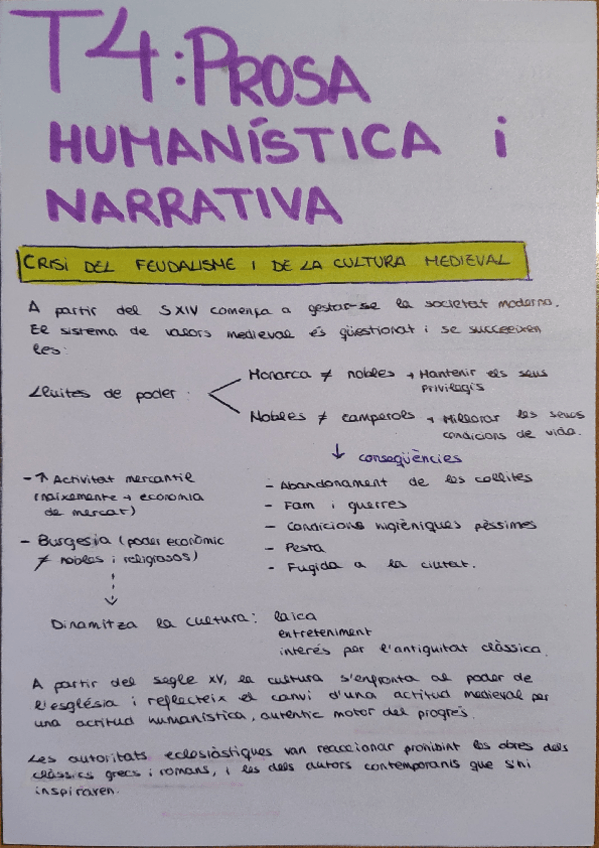 T4: PROSA
HUMANÍSTICA i
NARRATIVA
CRISI DEL FEUDALISME I DE LA CULTURA MEDIEVAL
A partir del S XIV comença a gestar-se la societat moderna.
El sistema de valors medieval és qüestionat i se succeeixen
les:
Lluites de poder:
Monarca ≠ nobles → Mantenir els seus
privilegis
Nobles ≠ camperols → Millorar les seves
condicions de vida.
↓ conseqüències
- ↑ Activitat mercantil
(naixement → economia
de mercat)
- Burgesia (poder econòmic
≠ nobles i religiosos)
- Abandonament de les collites
- Fam i guerres
- Condicions higièniques pèssimes
- Pesta
- Fugida a la ciutat.
Dinamitza la cultura: laica
entreteniment
interés per l'antiguitat clàssica.
A partir del segle XV, la cultura s'enfronta al poder de
l'església i reflecteix el canvi d'una actitud medieval per
una actitud humanística, autèntic motor del progrés.
Les autoritats eclesiàstiques van reaccionar prohibint les obres dels
clàssics grecs i romans, i les dels autors contemporanis que s'hi
inspiraren.